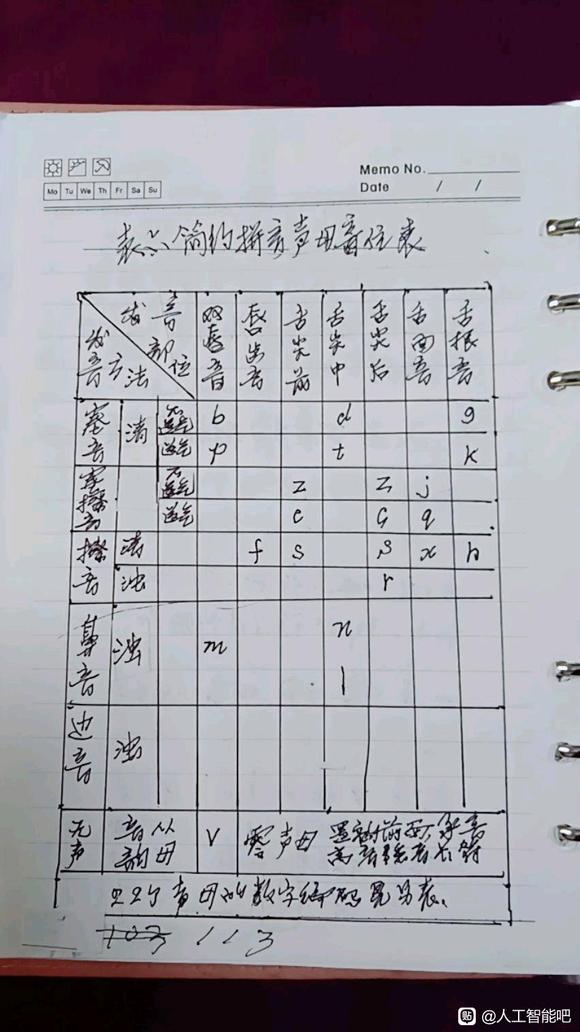 Memo No.
Mo Tu We Th Fr Sa Su
Date / /
表六简约拼音声母音位表
发音部位 双唇音 唇齿音 舌尖前 舌尖中 舌尖后 舌面音 舌根音
发音方法
塞音 清 不送气 b d g
送气 p t k
塞擦音 不送气 z Z j
送气 c C q
擦音 清 f s S x h
浊 r
鼻音 浊 m n
l
边音 浊
无声 音从韵母 V 零声母
22个声母的数字编码见另表。
103 113
贴 @人工智能吧